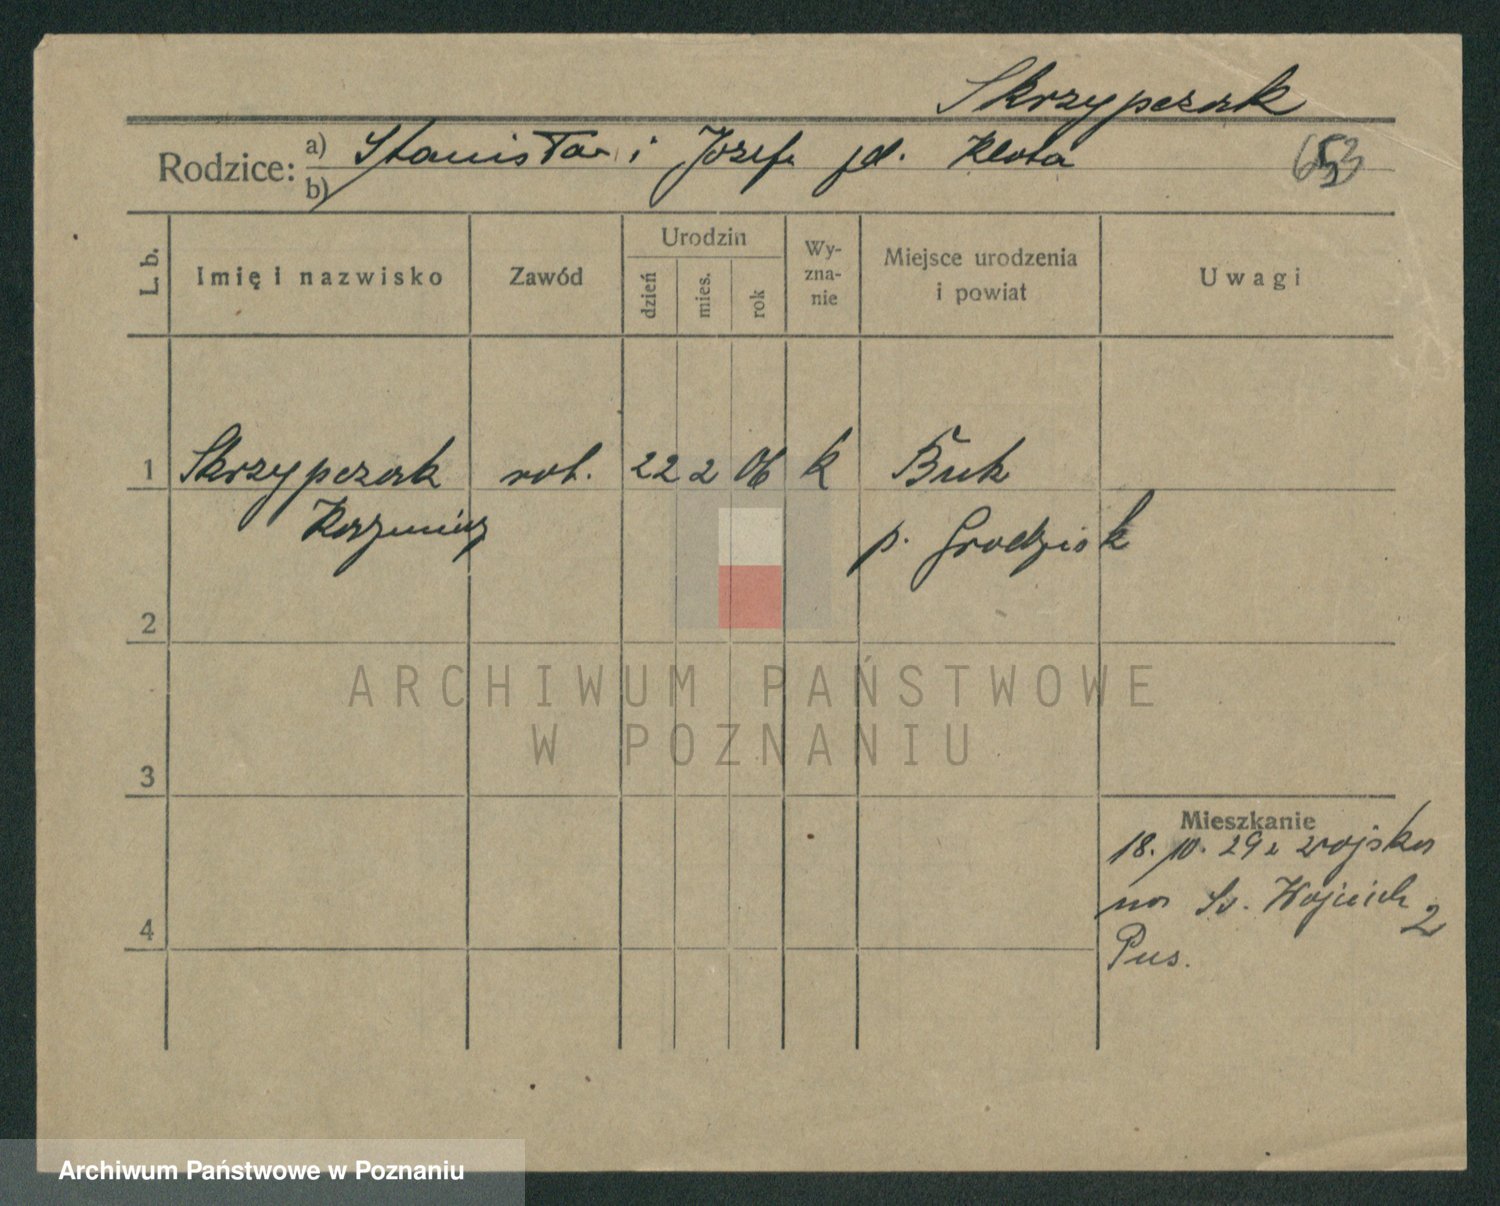 Skrzypczak
Rodzice: a) Stanisław i Józefa jd. Klota
b)
653
L. b.
Imię i nazwisko
Zawód
Urodzin
dzień
mies.
rok
Wy-
zna-
nie
Miejsce urodzenia
i powiat
Uwagi
1 Skrzypczak rob. 22 2 06 k Buk
Kazimierz p. Grodzisk
2
3
4
Mieszkanie
18. 10. 29 z wojska
na Św. Wojciech 2
Pus.
ARCHIWUM PAŃSTWOWE
W POZNANIU
Archiwum Państwowe w Poznaniu